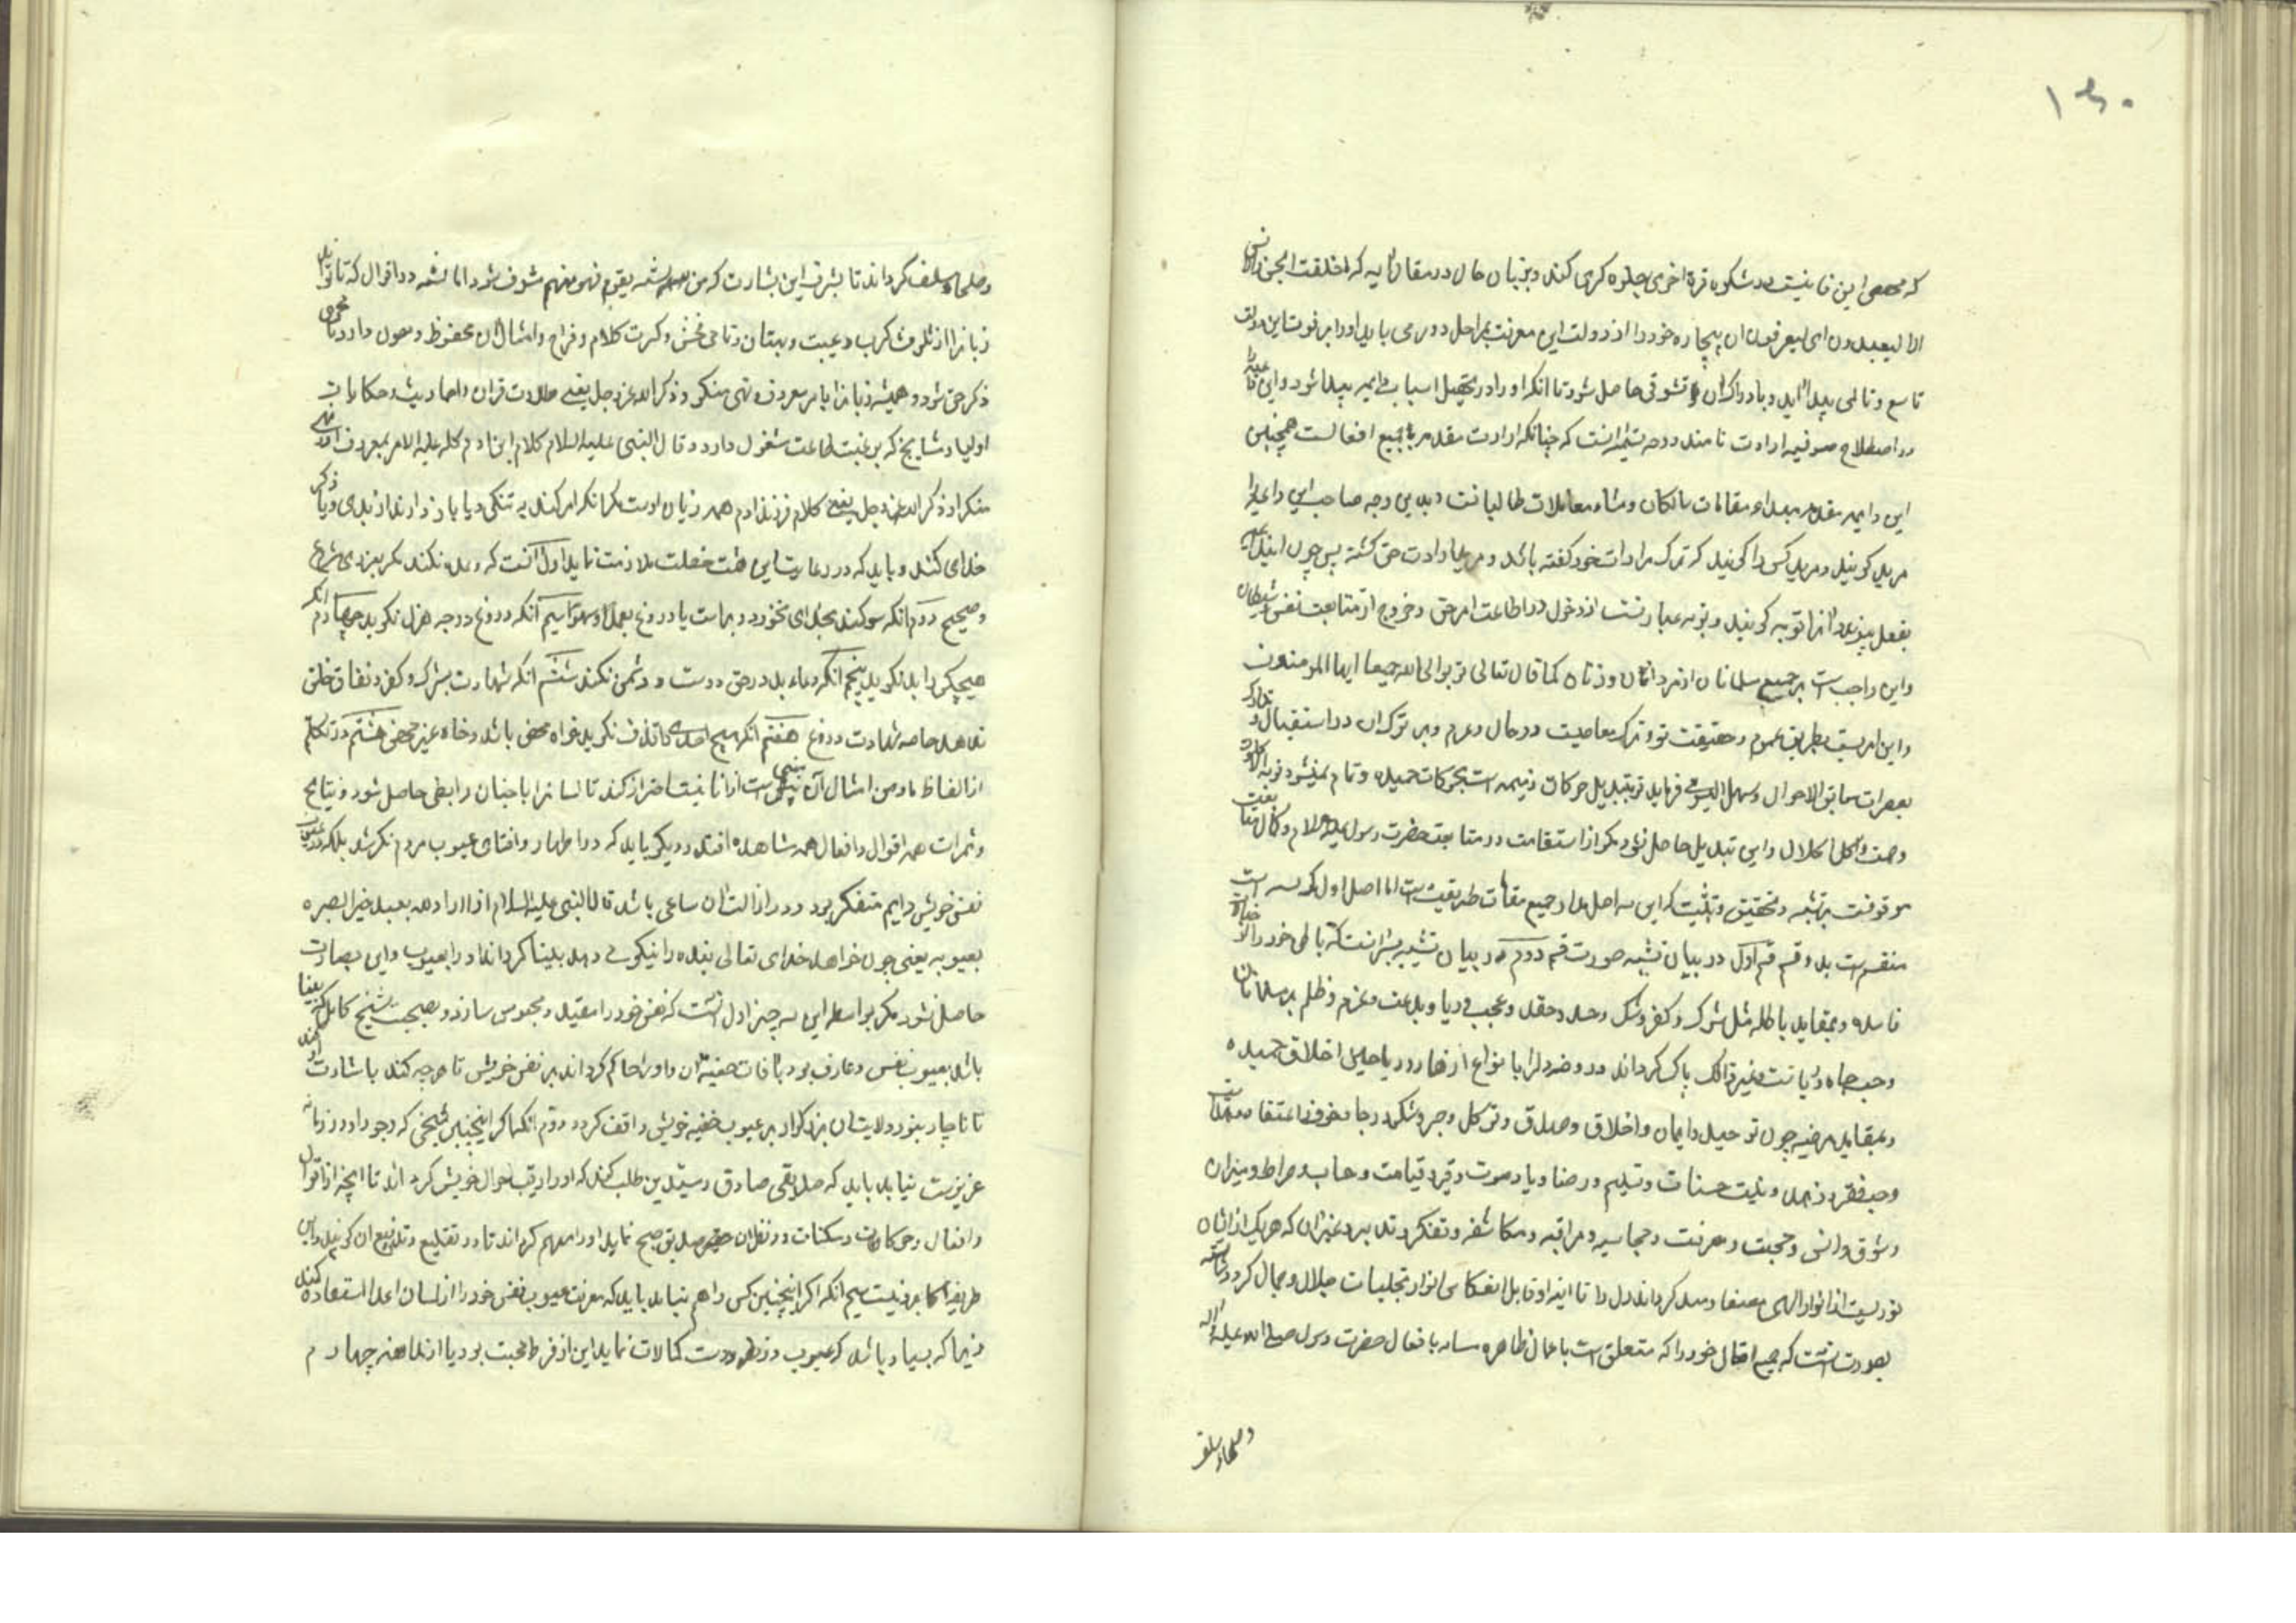 ۱۴۰
که محصی این فانیست در شکوه قرة اخری جلوه کری کند و بزبان حال در مقال آیه که ما خلقت الجن و الانس
الا لیعبدون ای لیعرفون ان بیچاره خود را از دولت این معرفت بمراحل دور می یابد او را بر فوت این دولت
تاسع و تالمی پیدا آید و بادراک آن تشوقی حاصل شود تا انکه او را در تحصیل اسباب داعیه پیدا شود و این داعیه را
در اصطلاح صوفیه ارادت نامند و وجه تسمیه انست که چنانکه ارادت مقدم بر جمیع افعالست همچنین
این داعیه مقدم مبداء مقامات سالکان و منشاء معاملات طالبانست و بدین وجه صاحب این داعیه را
مرید کویند و مرید کسی را کویند که ترک مرادات خود کفته باشد و مرید ارادت حق کشته پس چون این داعیه
بفعل پیوندد انرا توبه کویند و توبه عبارتست از دخول در اطاعت امر حق و خروج از متابعت نفس و شیطان
و این واجب است بر جمیع مسلمانان از مردان و زنان کما قال تعالی توبوا الی الله جمیعا ایها المومنون
و این امریست بطریق عموم و حقیقت توبه ترک معاصیت در حال و عزم بر ترک ان در استقبال و تدارک
سابق الاحوال و سهل فرماید توبه تبدیل حرکات ذمیمه است بحرکات حمیده و تمام نمیشود توبه الا
و صمت و اکل حلال و این تبدیل حاصل نشود مکر از استقامت در متابعت حضرت رسول علیه السلام و کمال متابعت
موقوفست بر تشبه و تحقیق و تثبیت که این سه اصل مدار جمیع مقامات طریقیت است اما اصل اول که تشبه است
منقسم است بدو قسم قسم اول در بیان تشبه صورت قسم دوم در بیان تشبه انست که باطن خود را از خیالات
فاسده و عقاید باطله مثل شرک و کفر و شک و حسد و حقد و عجب و ریا و بدعت و عزم و ظلم بر مسلمانان
و حب جاه و خیانت و غیر ذالک پاک کرداند و روضه دل را بانواع ازهار و ریاحین اخلاق حمیده
و عقاید مرضیه چون توحید و ایمان و اخلاق و صدق و توکل و صبر و شکر و رجا و خوف و اعتقاد
و حب فقر و زهد و نیت حسنات و تسلیم و رضا و یاد موت و قبر و قیامت و حساب و صراط و میزان
و شوق و انس و محبت و معرفت و محاسبه و مراقبه و مکاشفه و تفکر و تدبر و غیر ان که هر یک از ایشان
نوریست از انوار الهی مصفا کرداند دل را تا اینه او قابل انعکاس انوار تجلیات جلال و جمال کردد
بصورت انست که جمیع افعال خود را که متعلق است باعمال ظاهره بافعال حضرت رسول صلی الله علیه و اله
و صلحاء سلف
و صلحاء سلف کرداند تا بشرف این بشارت که من تشبه بقوم فهو منهم مشرف شود اما تشبه در اقوال که تا تواند
زبانرا از تلوث کذب و غیبت و بهتان و تاحی فحش و کثرت کلام و مزاح و امثال ان محفوظ و مصون دارد تا
ذکر حق شود و همیشه زبانرا بامر معروف و نهی منکر و ذکر الله عز و جل یعنی تلاوت قران و احادیث و حکایات
اولیا و مشایخ که بر رغبت طاعت مشغول دارد و قال النبی علیه السلام کلام ابن ادم کله علیه الا امر بمعروف او نهی
منکر او ذکر الله عز و جل یعنی کلام فرزند ادم همه زیان اوست مکر انکه امر کند به نیکی و یا باز دارند از بدی و یا ذکر
خدای کنند و باید که در رعایت این هشت خصلت ملازمت نماید اول انست که وعده نکند مکر بعزمی
صحیح دوم انکه سوکند بخدای نخورد و براست یا دروغ بعمد او سهو سیم آنکه دروغ در وجه هزل نکوید چهارم انکه
هیچکس را بد نکوید پنجم انکه دعاء بد در حق دوست و دشمن نکند ششم انکه شهادت بشرک و کفر و نفاق خلق
ندهد خاصه شهادت دروغ هفتم انکه هیچ احدی را قذف نکوید خواه محض باشد و خاه غیر محض هشتم در تکلم
از الفاظ ما و من و امثال آن که مبنی است از انانیت احتراز کند تا لسانرا باجنان رابطی حاصل شود و نتایج
و ثمرات همه اقوال و افعال همه مشاهده افتد و دیکر باید که در اظهار و افشای عیوب مردم نکوشد بلکه در عیوب
نفس خویش دایم متفکر بود و در ازالت ان ساعی باشد قال النبی علیه السلام اذا اراد الله بعبد خیرا بصره
بعیوبه یعنی چون خواهد خدای تعالی بنده را نیکویی دهد بینا کرداند او را بعیوب و این بصارت
حاصل نشود مکر بواسطه این سه چیز اول انست که نفس خود را مقید و محبوس سازد و بصحبت شیخ کامل که بینا
باشد بعیوب نفس و عارف بود بافات خفیه ان و او را حاکم کرداند بر نفس خویش تا هر چه کند باشارت او کند
تا ناچار بنور ولایت ان بزرکوار بر عیوب خفیه خویش واقف کردد دوم انکه اکر اینچنین شیخی که وجود او در زمانه
عزیزست نیابد باید که صدیقی صادق متدین طلب کند که او را رقیب احوال خویش کرداند تا انچه از اقوال
و افعال و حرکات و سکنات در نظر ان صدیق قبیح نماید او را ملهم کرداند تا در تقلیع و تدفیع ان کوشد و این
طریقه اکابر دینست سیم انکه اکر اینچنین کس را هم نیابد باید که معرفت عیوب نفس خود را از لسان اعدا استفاده کند
زیرا که بسیار باشد که عیوب در نظر دوست کمالات نماید این از فرط محبت بود یا از مداهنه چهارم